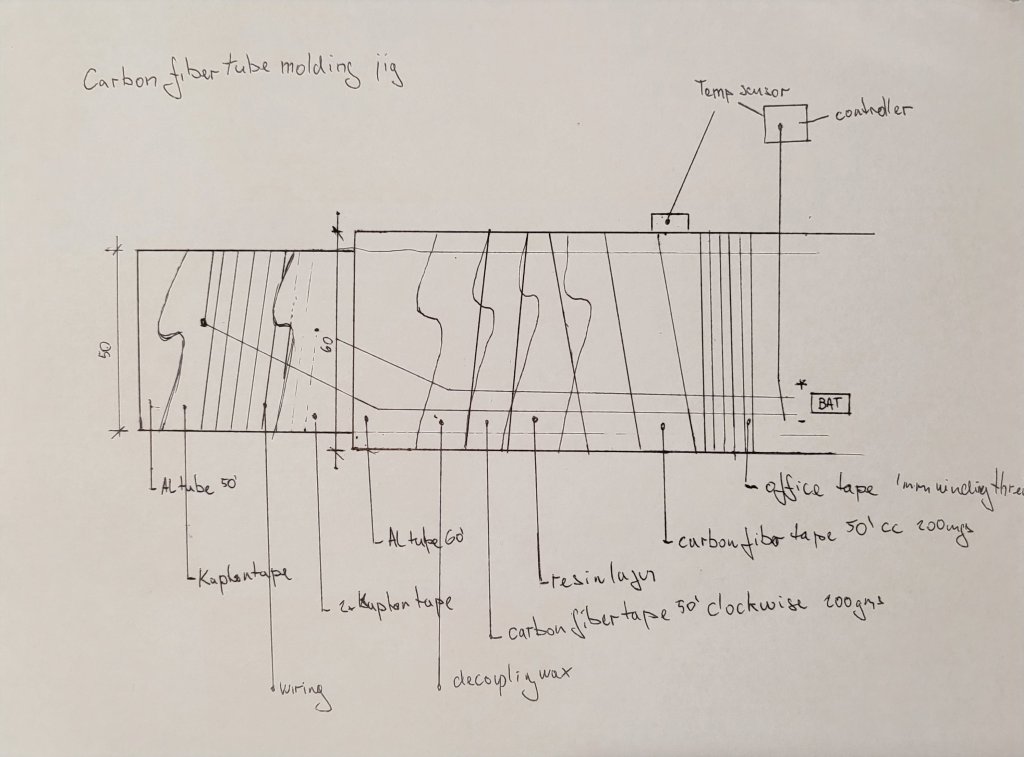 Carbon fiber tube molding jig
Temp sensor
controller
50
60
+
BAT
-
AL tube 50'
office tape 1mm winding thre
AL tube 60'
carbon fiber tape 50' cc 200mgs
Kapton tape
resin layer
2x Kapton tape
carbon fiber tape 50' clockwise 200gms
wiring
decoupling wax